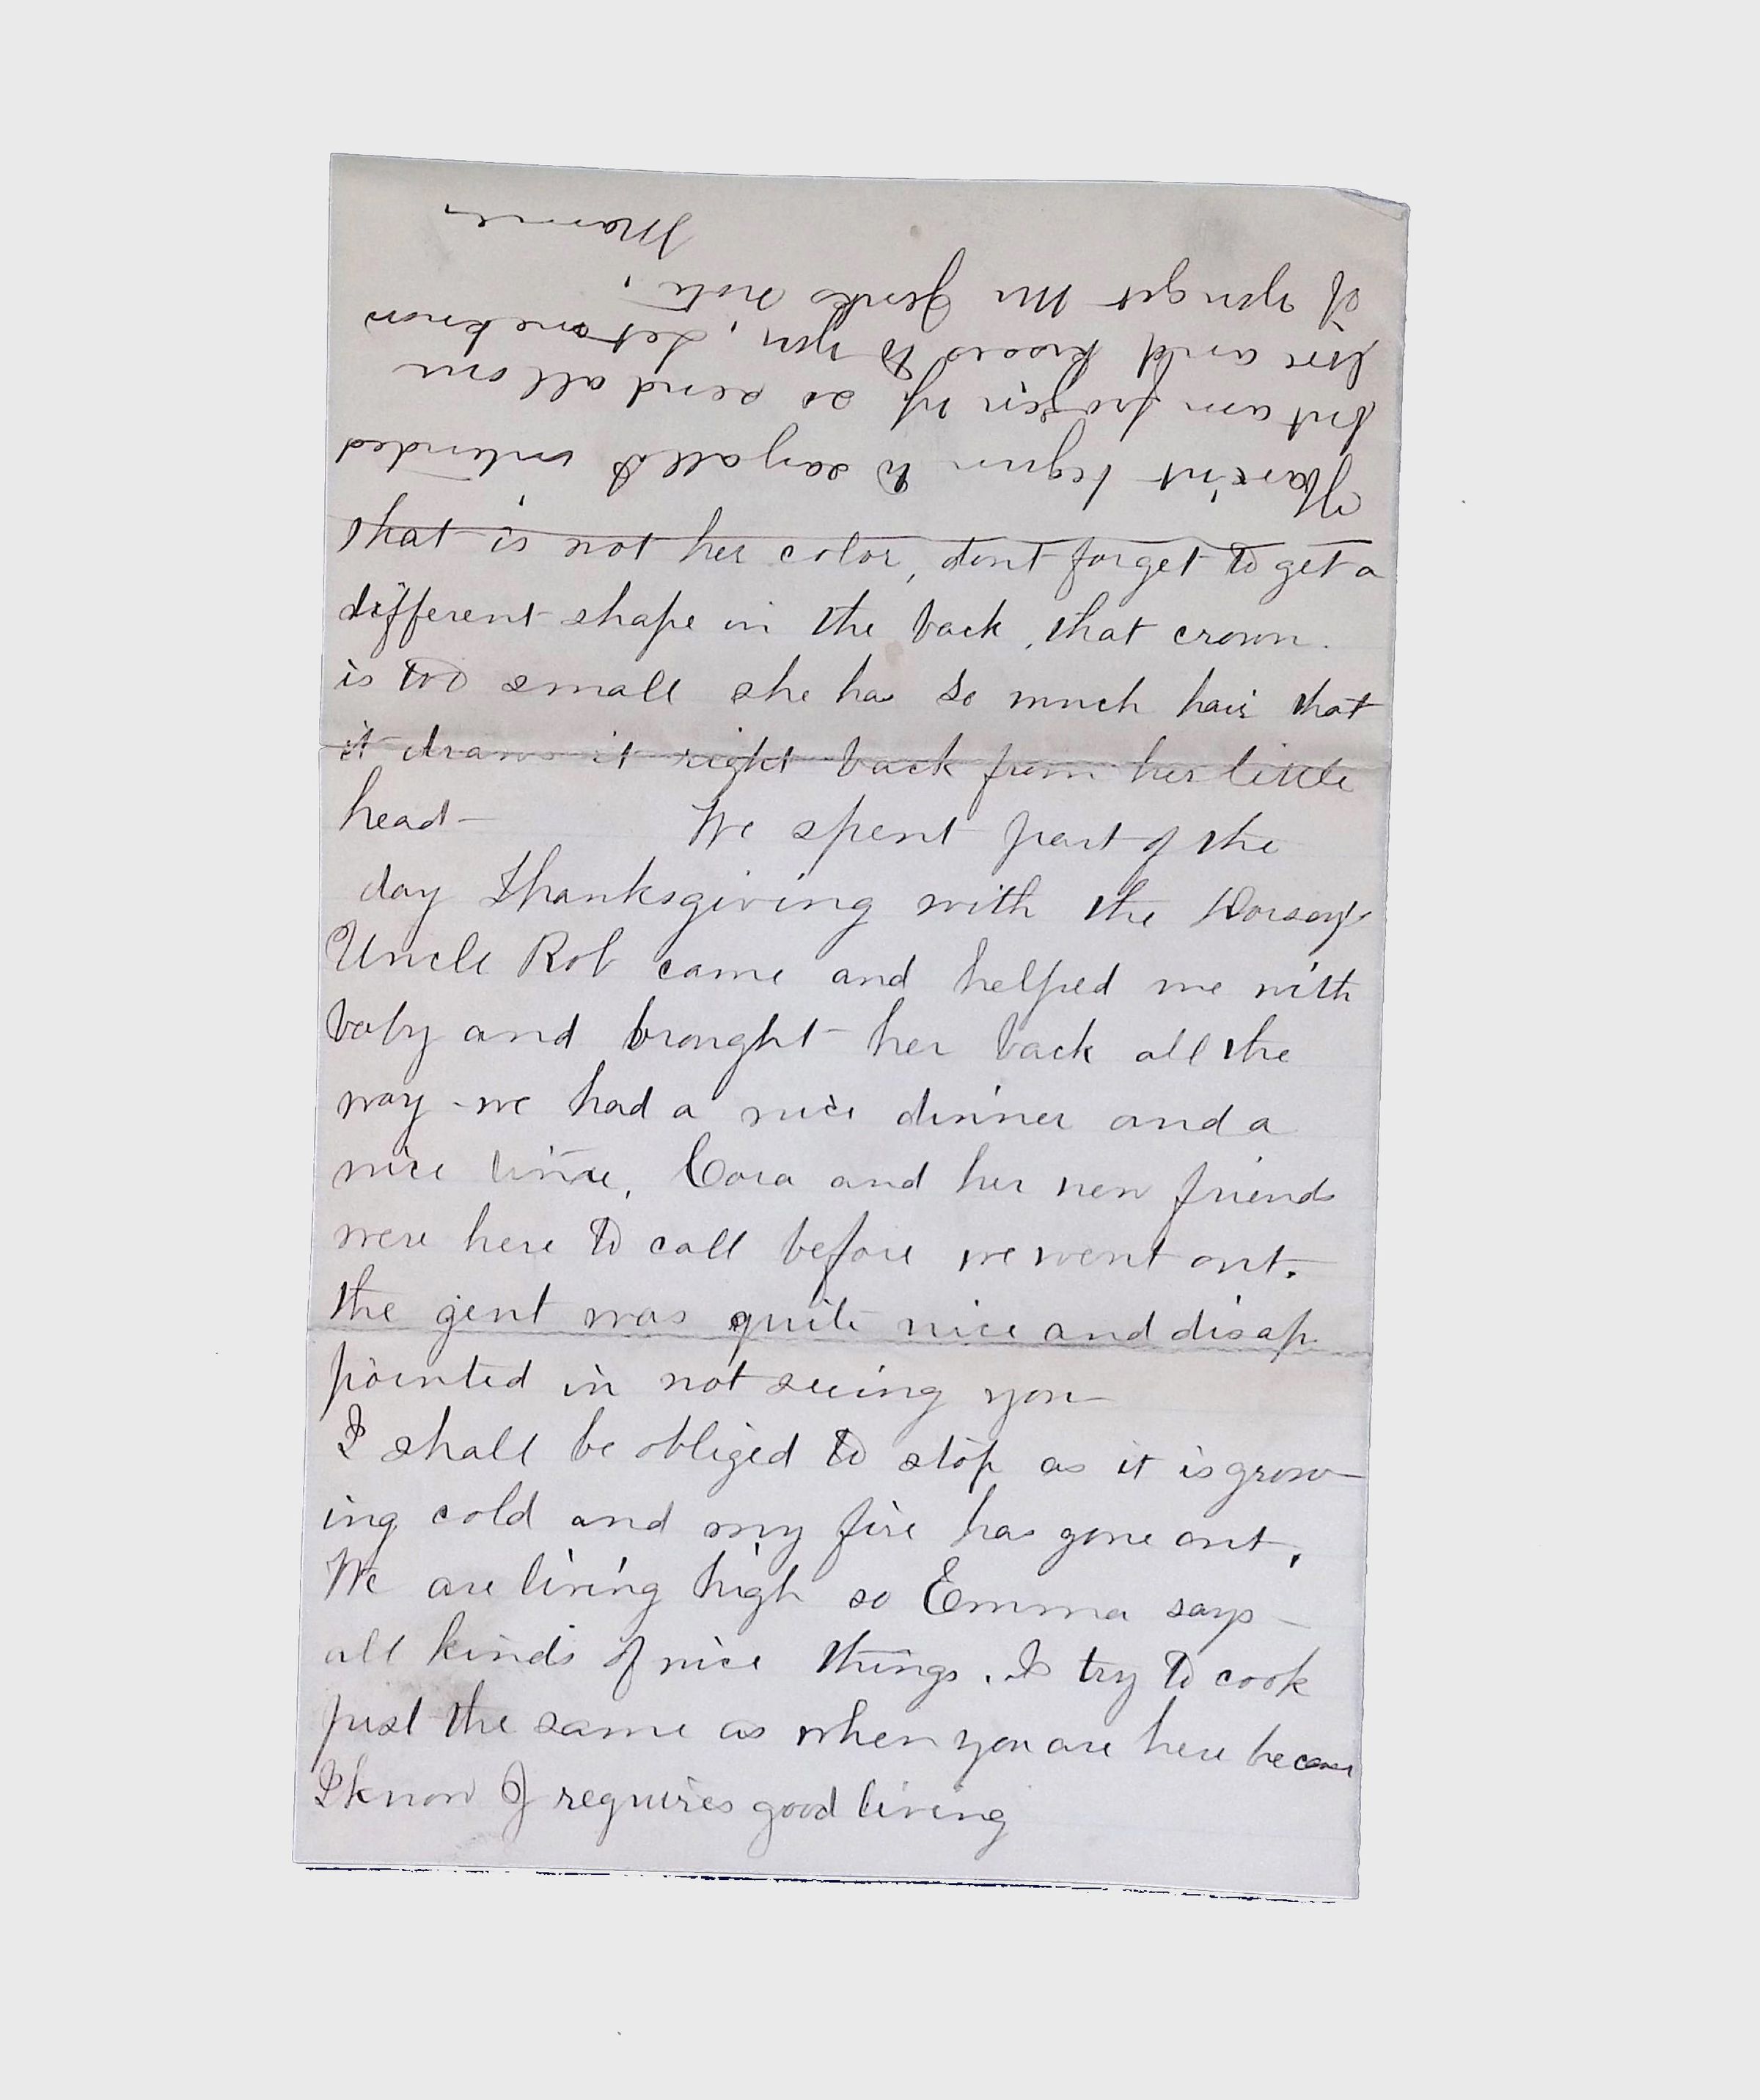 that is not her color, dont forget to get a
different shape in the back, that crown.
is too small she has so much hair that
it draws it right back from her little
head— We spent part of the
day Thanksgiving with the Dorsey's
Uncle Rob came and helped me with
baby and brought her back all the
way - we had a nice dinner and a
nice time, Cora and her new friends
were here to call before we went out.
the gent was quite nice and disap
pointed in not seeing you—
I shall be obliged to stop as it is grow
ing cold and my fire has gone out.
We are living high so Emma says—
all kinds of nice things. I try to cook
just the same as when you are here because
I know J requires good living
Haven't begun to say all I intended
but am frozen up so send all our
love and kisses to you, Let me know
if you get Mr Jenks note.
Mamie